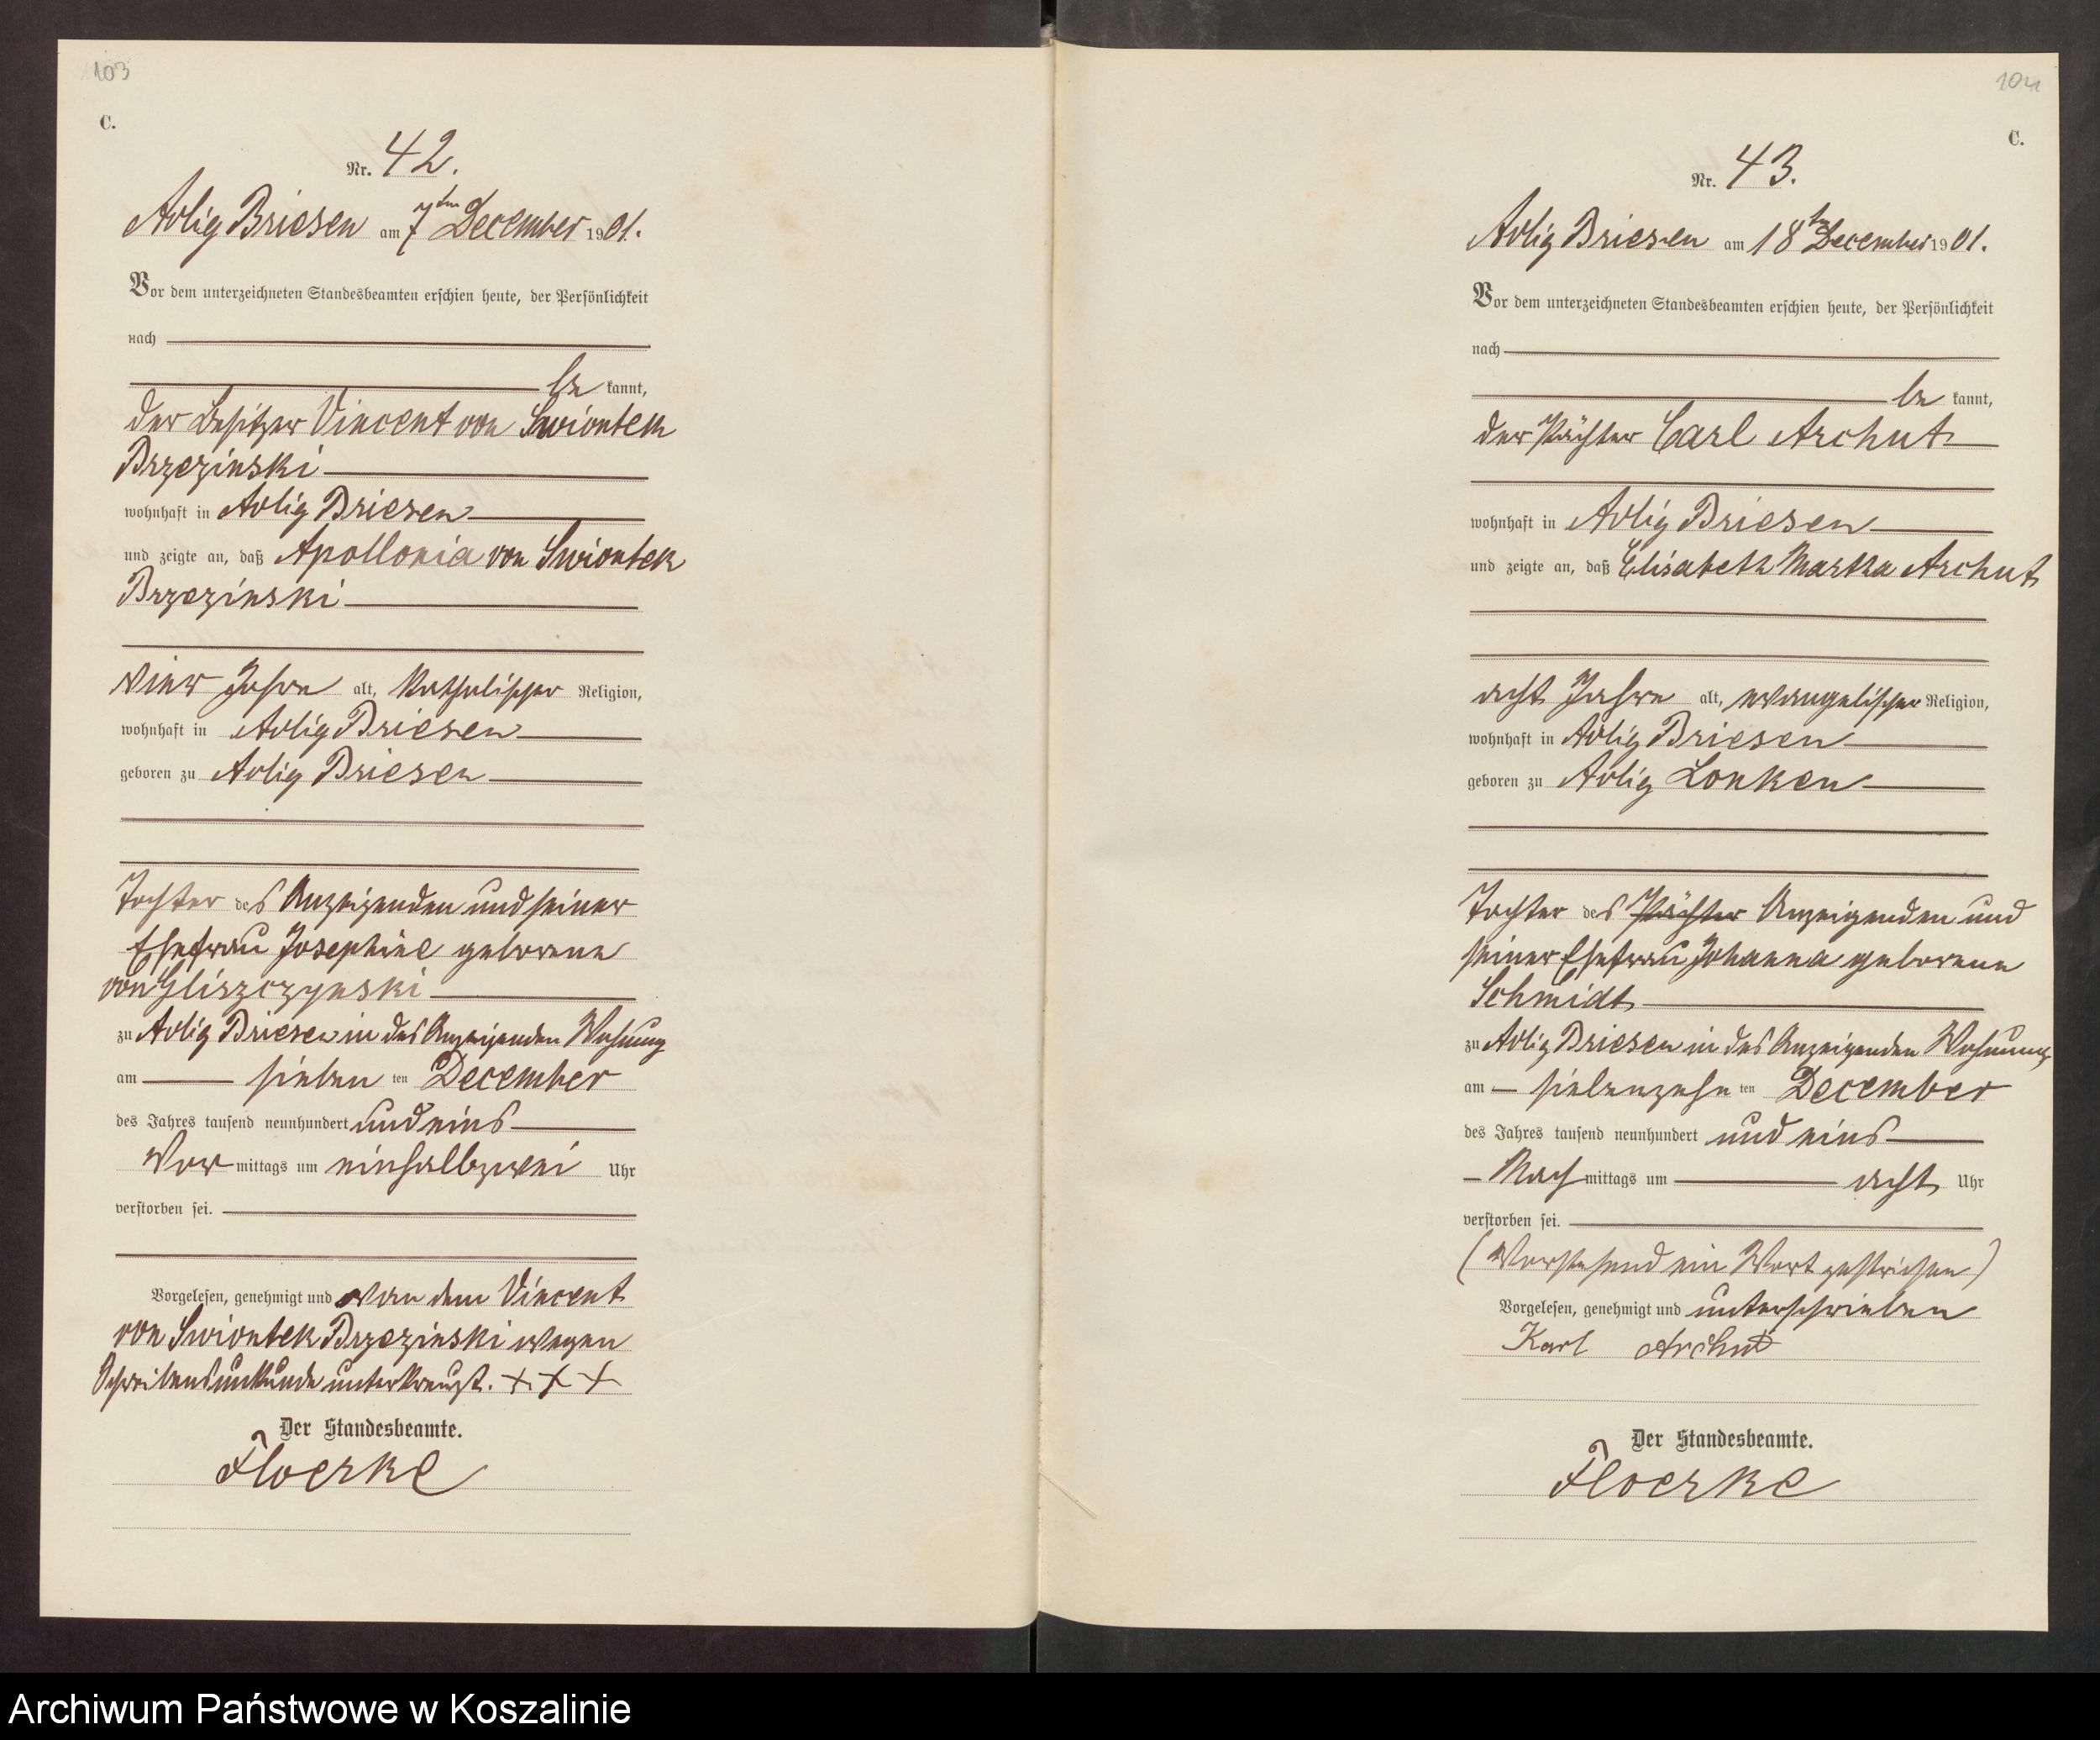 103
C.
Nr. 42.
Adlig Briesen am 7ten December 1901.
Vor dem unterzeichneten Standesbeamten erschien heute, der Persönlichkeit
nach
be kannt,
der Besitzer Vincent von Swiontek
Brzezinski
wohnhaft in Adlig Briesen
und zeigte an, daß Apollonia von Swiontek
Brzezinski
vier Jahre alt, katholischer Religion,
wohnhaft in Adlig Briesen
geboren zu Adlig Briesen
Tochter des Anzeigenden und seiner
Ehefrau Josephine geborene
von Gliszczynski
zu Adlig Briesen in des Anzeigenden Wohnung
am sieben ten December
des Jahres tausend neunhundert und eins
Vor mittags um einhalbzwei Uhr
verstorben sei.
Vorgelesen, genehmigt und von dem Vincent
von Swiontek Brzezinski wegen
Schreibensunkunde unterkreuzt. + + +
Der Standesbeamte.
Floerke
104
C.
Nr. 43.
Adlig Briesen am 18ten December 1901.
Vor dem unterzeichneten Standesbeamten erschien heute, der Persönlichkeit
nach
be kannt,
der Pächter Carl Archut
wohnhaft in Adlig Briesen
und zeigte an, daß Elisabeth Martha Archut
acht Jahre alt, evangelischer Religion,
wohnhaft in Adlig Briesen
geboren zu Adlig Lonken
Tochter des Pächter Anzeigenden und
seiner Ehefrau Johanna geborene
Schmidt
zu Adlig Briesen in des Anzeigenden Wohnung
am siebenzehn ten December
des Jahres tausend neunhundert und eins
Nach mittags um acht Uhr
verstorben sei.
(Vorstehend ein Wort gestrichen)
Vorgelesen, genehmigt und unterschrieben
Karl Archut
Der Standesbeamte.
Floerke
Archiwum Państwowe w Koszalinie